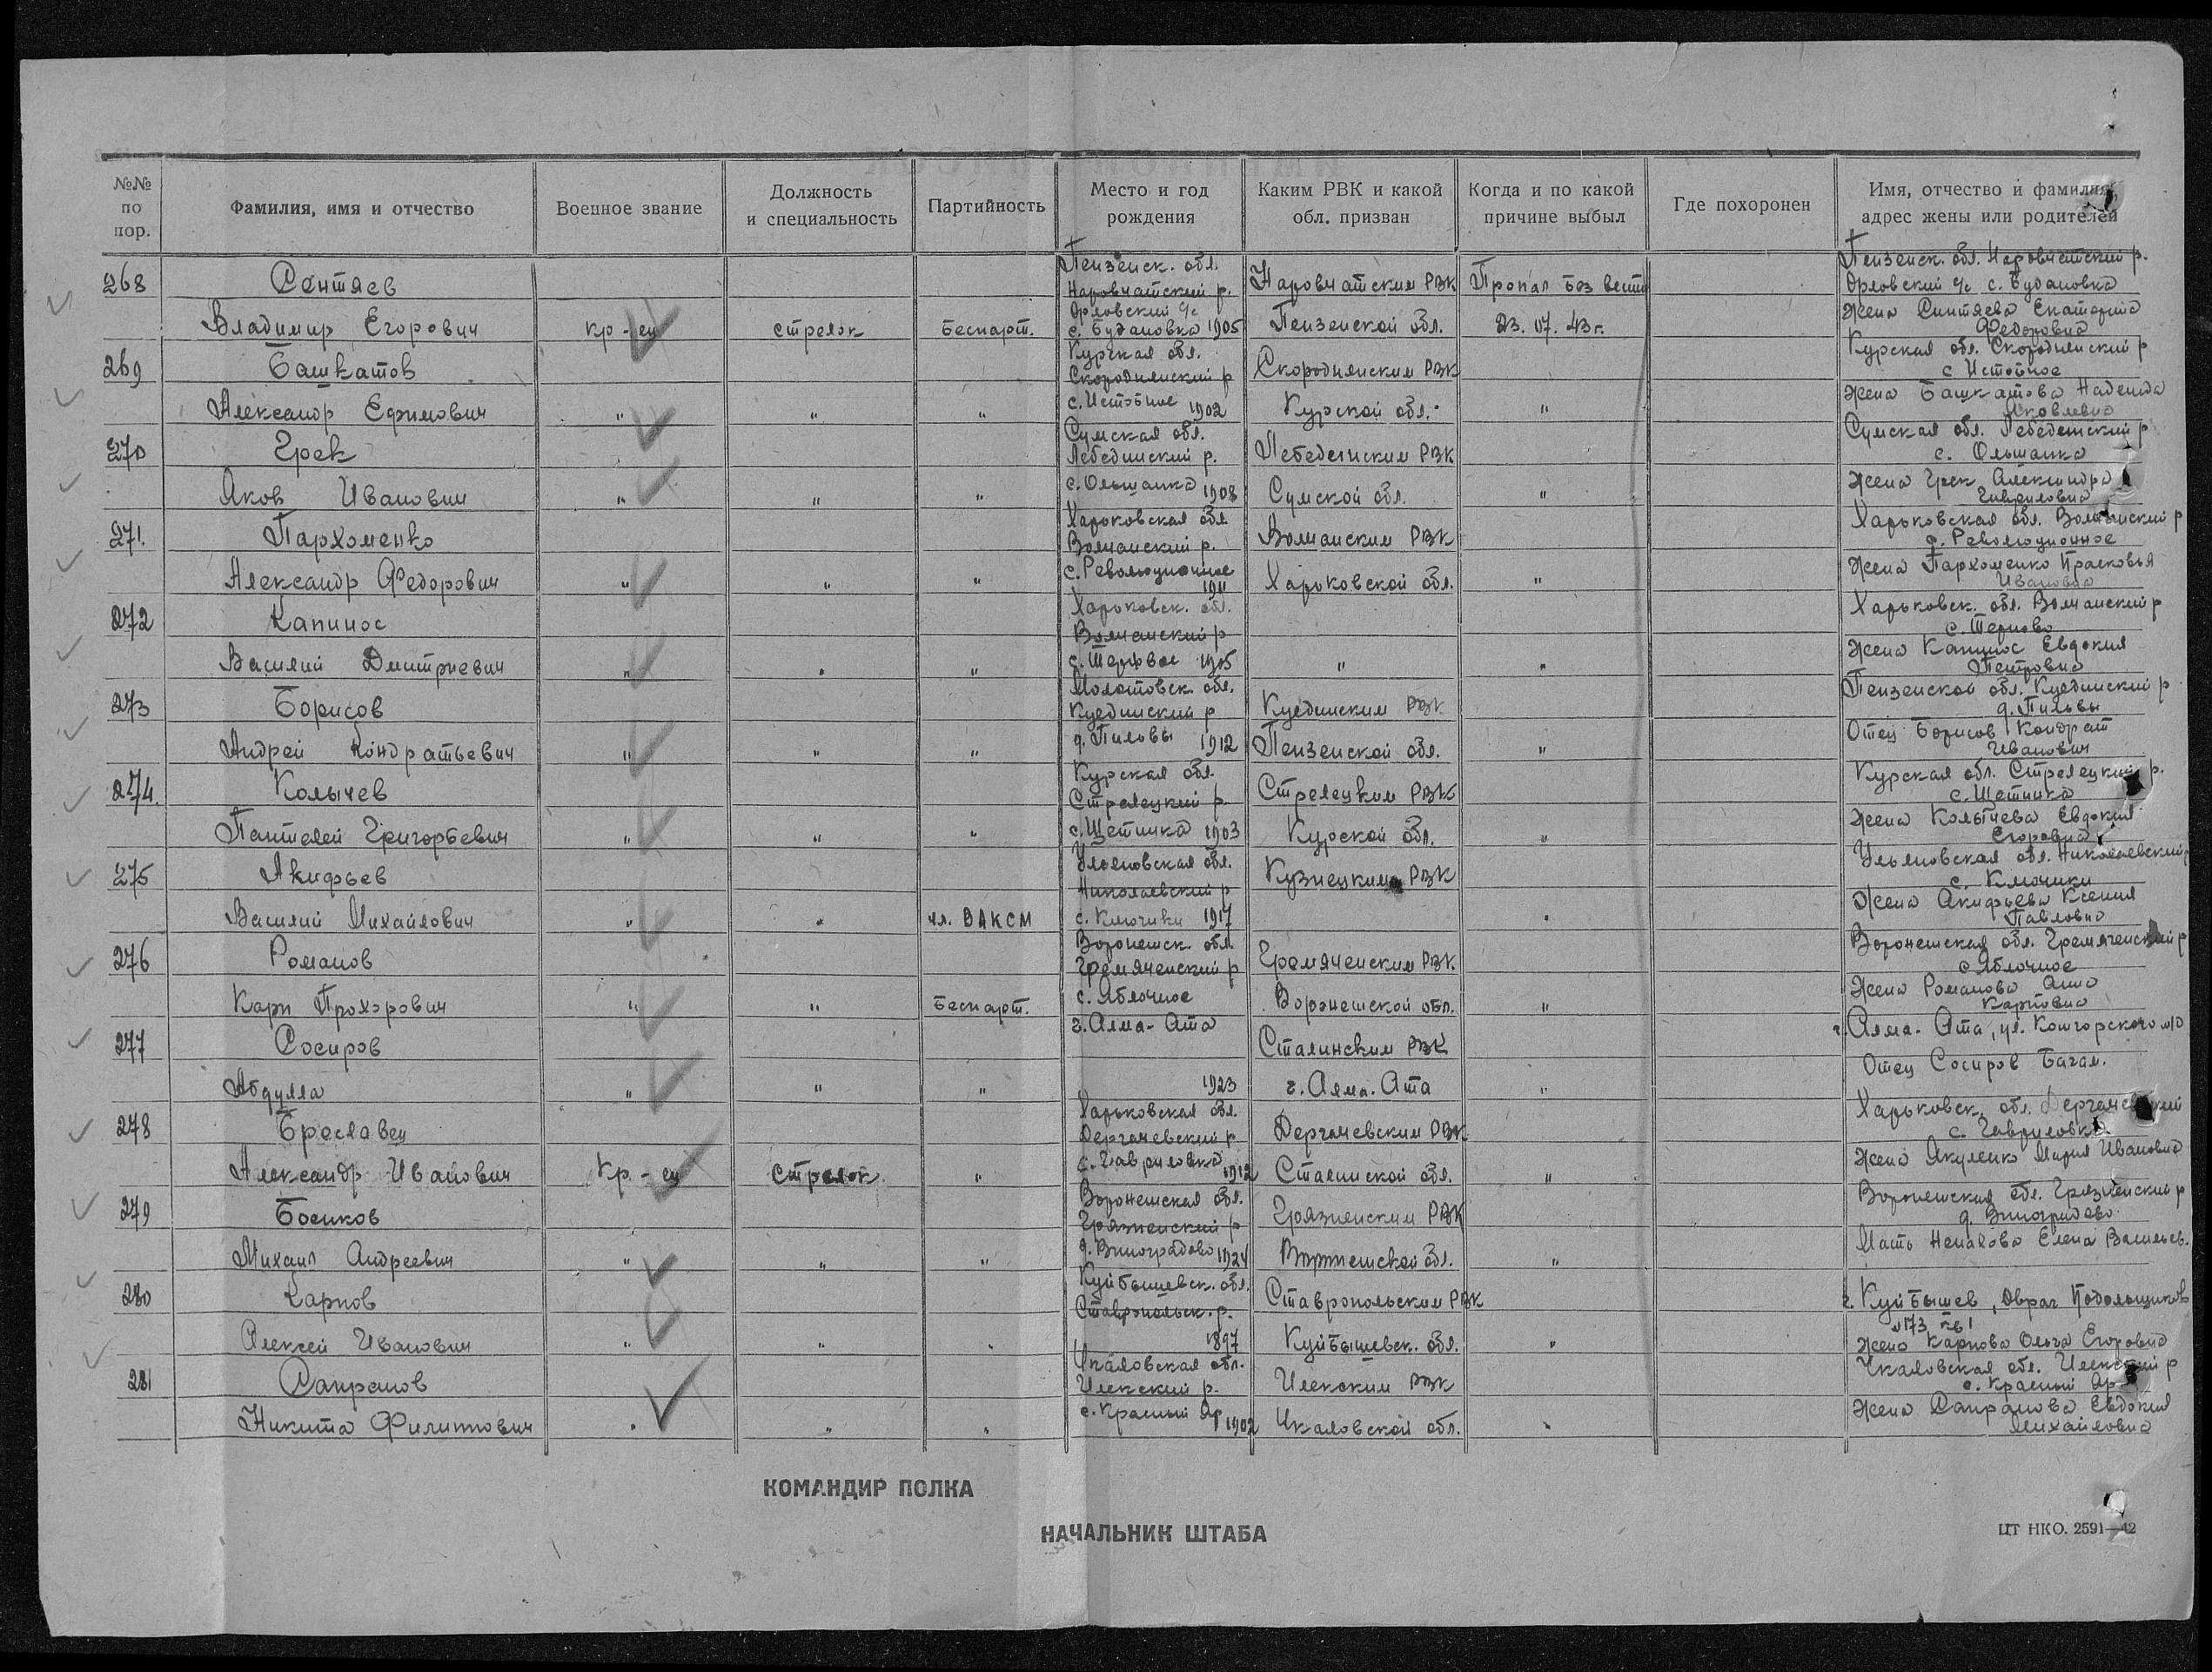 №№ по пор.
Фамилия, имя и отчество
Военное звание
Должность и специальность
Партийность
Место и год рождения
Каким РВК и какой обл. призван
Когда и по какой причине выбыл
Где похоронен
Имя, отчество и фамилия, адрес жены или родителей
268
Сентяев
Владимир Егорович
кр-ец
стрелок
Беспарт.
Пензенск. обл.
Наровчатский р.
Орловский с/с
с. Будановка 1905
Наровчатским РВК
Пензенской обл.
Пропал без вести
23.07.43г.
Пензенск. обл. Наровчатский р.
Орловский с/с с. Будановка
Жена Синтяева Екатерина
Федоровна
269
Башкатов
Александр Ефимович
"
"
"
Курская обл.
Скороднянский р
с. Истобное 1902
Скороднянским РВК
Курской обл.
"
Курская обл. Скороднянский р
с Истобное
Жена Башкатова Надежда
Яковлевна
270
Грек
Яков Иванович
"
"
"
Сумская обл.
Лебединский р.
с. Ольшанка 1908
Лебединским РВК
Сумской обл.
"
Сумская обл. Лебединский р
с. Ольшанка
Жена Грек Александра
Гавриловна
271.
Пархоменко
Александр Федорович
"
"
"
Харьковская обл.
Волчанский р.
с. Революционное
1911
Волчанским РВК
Харьковской обл.
"
Харьковская обл. Волчанский р
с. Революционное
Жена Пархоменко Прасковья
Ивановна
272
Капинос
Василий Дмитриевич
"
"
"
Харьковск. обл.
Волчанский р
с. Терновое 1905
"
"
Харьковск. обл. Волчанский р
с. Терново
Жена Капинос Евдокия
Петровна
273
Борисов
Андрей Кондратьевич
"
"
"
Молотовск. обл.
Куединский р
д. Пильвы 1912
Куединским РВК
Пензенской обл.
"
Пензенской обл. Куединский р
д. Пильвы
Отец Борисов Кондрат
Иванович
274.
Колычев
Пантелей Григорьевич
"
"
"
Курская обл.
Стрелецкий р.
с. Щетинка 1903
Стрелецким РВК
Курской обл.
"
Курская обл. Стрелецкий р.
с. Щетинка
Жена Колычева Евдокия
Егоровна
275
Акифьев
Василий Михайлович
"
"
чл. ВЛКСМ
Ульяновская обл.
Николаевский р
с. Ключики 1917
Кузнецким РВК
"
Ульяновская обл. Николаевский р
с. Ключики
Жена Акифьева Ксения
Павловна
276
Романов
Карп Прохорович
"
"
Беспарт.
Воронежск. обл.
Гремяченский р
с. Яблочное
Гремяченским РВК.
Воронежской обл.
"
Воронежская обл. Гремяченский р
с Яблочное
Жена Романова Анна
Карповна
277
Сосиров
Абдулла
"
"
"
г. Алма-Ата
1923
Сталинским РВК
г. Алма-Ата
"
Отец Сосиров Багам.
278
Бреславец
Александр Иванович
Кр.-ец
Стрелок
"
Харьковская обл.
Дергачевский р
с. Гавриловка
1912
Дергачевским РВК
Сталинской обл.
"
Харьковск. обл. Дергачевский
с. Гавриловка
Жена Якуленко Мария Ивановна
279
Босиков
Михаил Андреевич
"
"
"
Воронежская обл.
Грязненский р
д. Виноградово 1924
Грязненским РВК
Воронежской обл.
"
Воронежская обл. Грязненский р
д. Виноградово
Мать Елена Васильев.
280
Карпов
Алексей Иванович
"
"
"
Куйбышевск. обл.
Ставропольск. р.
1897
Ставропольским РВК
Куйбышевск. обл.
"
г. Куйбышев, Овраг Подпольщиков
Жена Карпова Ольга Егоровна
281
Сапронов
Никита Филиппович
"
"
"
Чкаловская обл.
Илекский р.
с. Красный Яр 1902
Илекским РВК
Чкаловской обл.
"
Чкаловская обл. Илекский р
с. Красный Яр
Жена Сапронова Евдокия
Михайловна
КОМАНДИР ПОЛКА
НАЧАЛЬНИК ШТАБА
ЦТ НКО. 2591—42